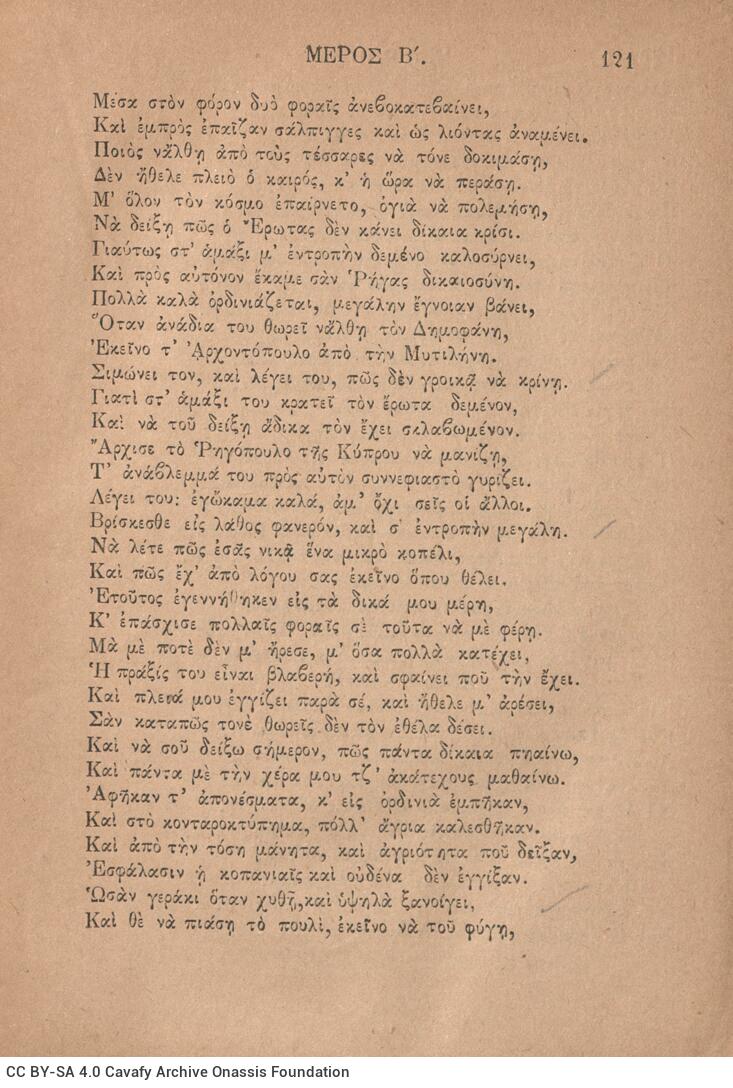 ΜΕΡΟΣ Β΄. 121
Μέσα στὸν φόρον δυὸ φοραῖς ἀνεβοκατεβαίνει,
Καὶ ἐμπρὸς ἐπαῖζαν σάλπιγγες καὶ ὡς λιόντας ἀναμένει.
Ποιὸς νἄλθῃ ἀπὸ τοὺς τέσσαρες νὰ τόνε δοκιμάσῃ,
Δὲν ἤθελε πλειὸ ὁ καιρός, κ' ἡ ὥρα νὰ περάσῃ.
Μ' ὅλον τὸν κόσμο ἐπαίρνετο, ὀγιὰ νὰ πολεμήσῃ,
Νὰ δείξῃ πῶς ὁ Ἔρωτας δὲν κάνει δίκαια κρίσι.
Γιαύτως στ' ἁμάξι μ' ἐντροπὴν δεμένο καλοσύρνει,
Καὶ πρὸς αὐτόνον ἔκαμε σὰν Ῥήγας δικαιοσύνη.
Πολλὰ καλὰ ὀρδινιάζεται, μεγάλην ἔγνοιαν βάνει,
Ὅταν ἀνάδια του θωρεῖ νἄλθῃ τὸν Δημοφάνη,
Ἐκεῖνο τ' Ἀρχοντόπουλο ἀπὸ τὴν Μυτιλήνη.
Σιμώνει τον, καὶ λέγει του, πῶς δὲν γροικᾷ νὰ κρίνῃ.
Γιατὶ στ' ἁμάξι του κρατεῖ τὸν ἔρωτα δεμένον,
Καὶ νὰ τοῦ δείξῃ ἄδικα τὸν ἔχει σκλαβωμένον.
Ἄρχισε τὸ Ῥηγόπουλο τῆς Κύπρου νὰ μανίζῃ,
Τ' ἀνάβλεμμά του πρὸς αὐτὸν συννεφιαστὸ γυρίζει.
Λέγει του: ἐγὤκαμα καλά, ἀμ' ὄχι σεῖς οἱ ἄλλοι.
Βρίσκεσθε εἰς λάθος φανερόν, καὶ σ' ἐντροπὴν μεγάλη.
Νὰ λέτε πῶς ἐσᾶς νικᾷ ἕνα μικρὸ κοπέλι,
Καὶ πῶς ἔχ' ἀπὸ λόγου σας ἐκεῖνο ὅπου θέλει.
Ἐτοῦτος ἐγεννήθηκεν εἰς τὰ δικά μου μέρη,
Κ' ἐπάσχισε πολλαῖς φοραῖς σὲ τοῦτα νὰ μὲ φέρῃ.
Μὰ μὲ ποτὲ δὲν μ' ἤρεσε, μ' ὅσα πολλὰ κατέχει,
Ἡ πρᾶξίς του εἶναι βλαβερή, καὶ σφαίνει ποῦ τὴν ἔχει.
Καὶ πλειά μου ἐγγίζει παρὰ σέ, καὶ ἤθελε μ' ἀρέσει,
Σὰν καταπῶς τονὲ θωρεῖς δὲν τὸν ἐθέλα δέσει.
Καὶ νὰ σοῦ δείξω σήμερον, πῶς πάντα δίκαια πηαίνω,
Καὶ πάντα μὲ τὴν χέρα μου τζ' ἀκάτεχους μαθαίνω.
Ἀφῆκαν τ' ἀπονέσματα, κ' εἰς ὀρδινιὰ ἐμπῆκαν,
Καὶ στὸ κονταροκτύπημα, πόλλ' ἄγρια καλεσθῆκαν.
Καὶ ἀπὸ τὴν τόση μάνητα, καὶ ἀγριότητα ποῦ δεῖξαν,
Ἐσφάλασιν ᾑ κοπανιαῖς καὶ οὐδένα δὲν ἐγγίξαν.
Ὡσὰν γεράκι ὅταν χυθῇ, καὶ ὑψηλὰ ξανοίγει,
Καὶ θὲ νὰ πιάσῃ τὸ πουλὶ, ἐκεῖνο νὰ τοῦ φύγῃ,
CC BY-SA 4.0 Cavafy Archive Onassis Foundation